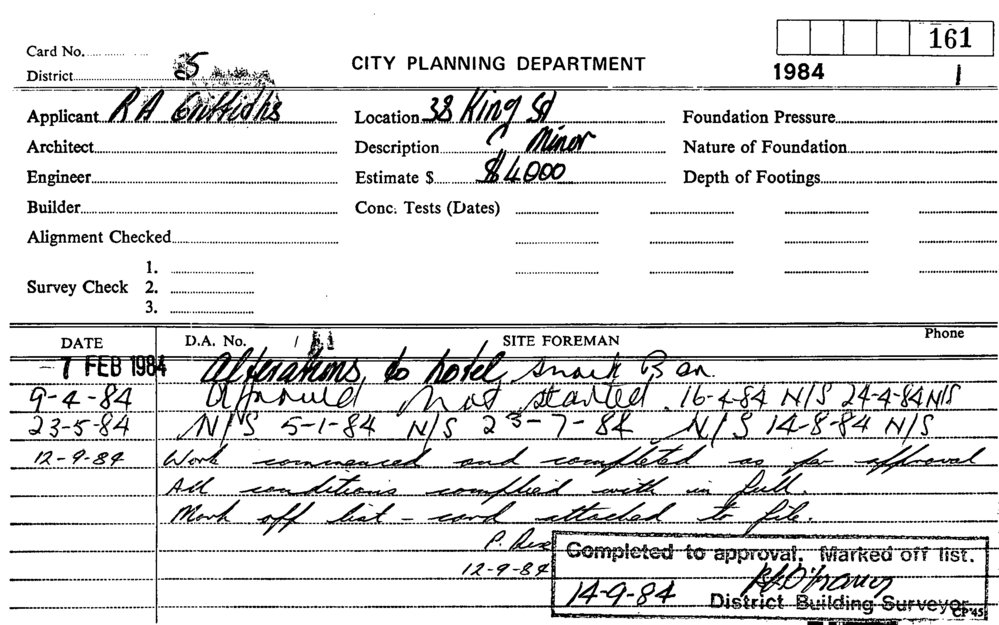 161
Card No.
District 5
CITY PLANNING DEPARTMENT
1984 1
Applicant R A Griffiths
Location 38 King St
Foundation Pressure
Architect
Description Minor
Nature of Foundation
Engineer
Estimate $ $4000
Depth of Footings
Builder
Conc. Tests (Dates)
Alignment Checked
Survey Check 1.
2.
3.
DATE D.A. No. / SITE FOREMAN Phone
7 FEB 1984 Alterations to hotel snack Bar.
9-4-84 Approved Not started. 16-4-84 N/S 24-4-84 N/S
23-5-84 N/S 5-1-84 N/S 23-7-84 N/S 14-8-84 N/S
12-9-84 Work commenced and completed as per approval
All conditions complied with in full.
Mark off list - card attached to file.
P.
12-9-84
Completed to approval. Marked off list.
14-9-84 District Building Surveyor
CP45